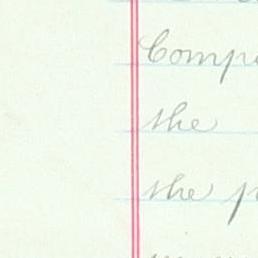 Comp
the
the p